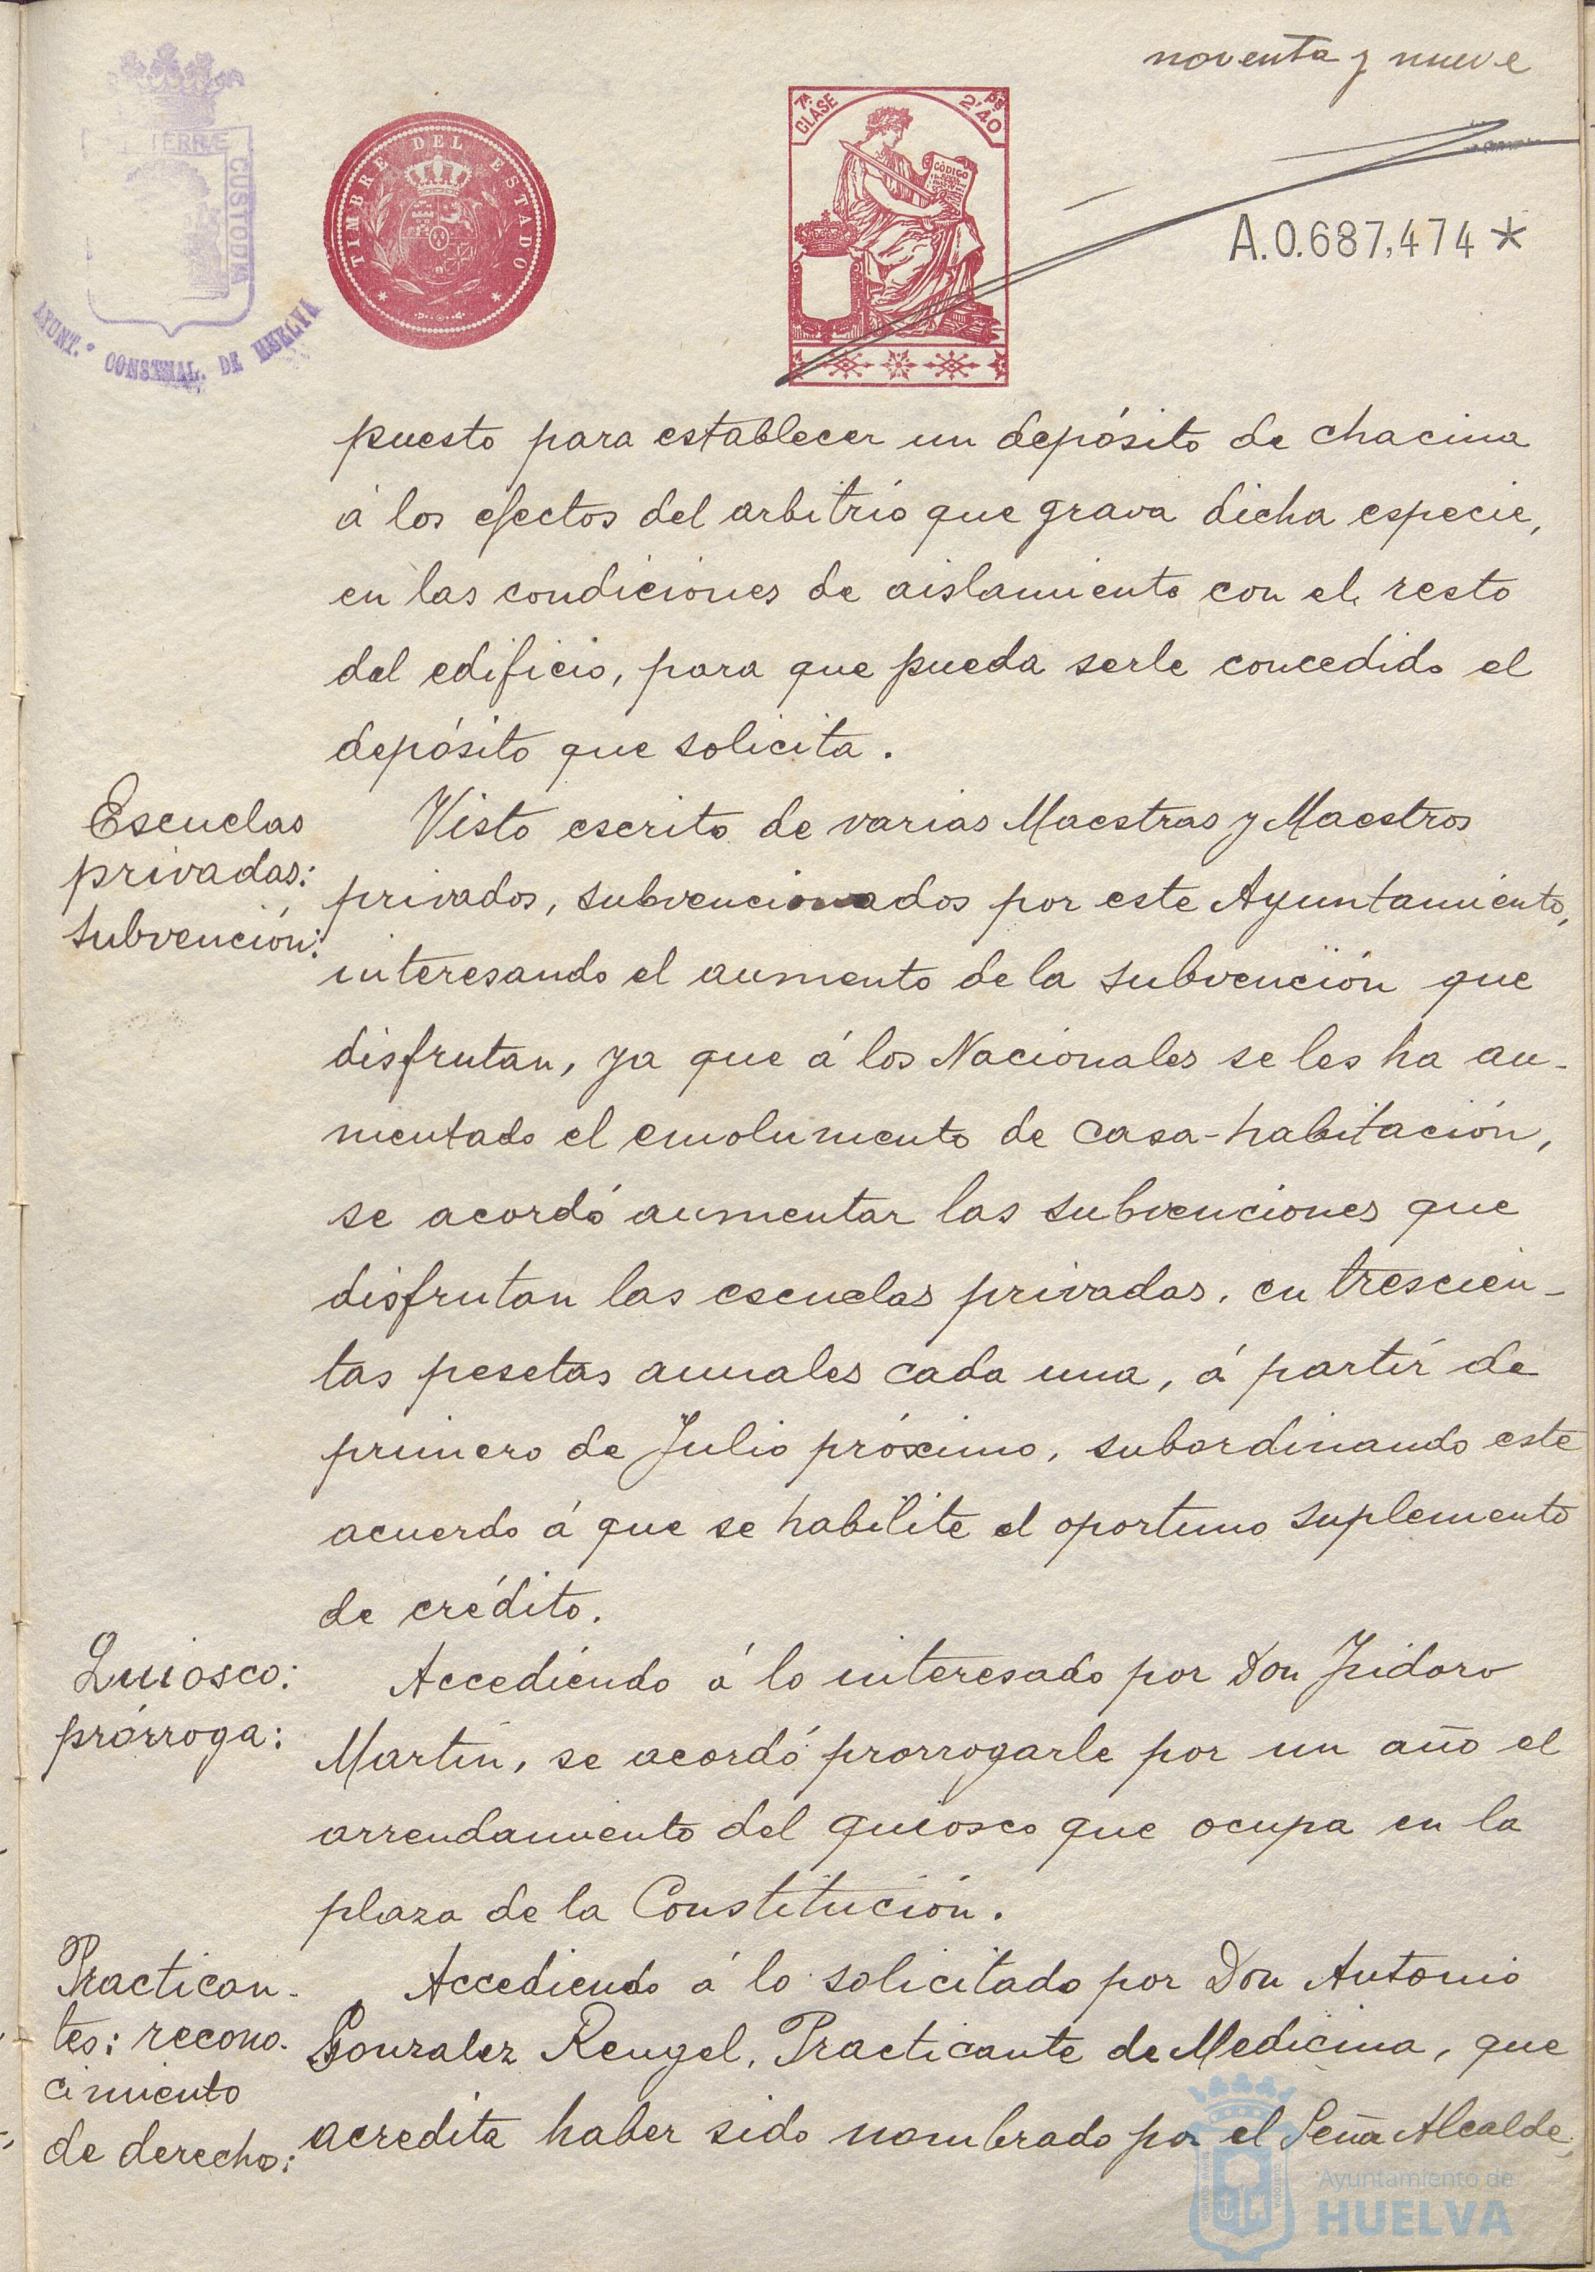 noventa y nueve
TERRÆ
CUSTODIA
AYUNT.º CONSTNAL. DE HUELVA
TIMBRE DEL ESTADO
7ª CLASE
2'40 ps
CÓDIGO
A.0.687,474*
puesto para establecer un depósito de chacina
á los efectos del arbitrio que grava dicha especie,
en las condiciones de aislamiento con el resto
del edificio, para que pueda serle concedido el
depósito que solicita.
Escuelas
privadas:
subvención:
Visto escrito de varias Maestras y Maestros
privados, subvencionados por este Ayuntamiento,
interesando el aumento de la subvención que
disfrutan, ya que á los Nacionales se les ha au-
mentado el emolumento de casa-habitación,
se acordó aumentar las subvenciones que
disfrutan las escuelas privadas, en trescien-
tas pesetas anuales cada una, á partir de
primero de Julio próximo, subordinando este
acuerdo á que se habilite el oportuno suplemento
de crédito.
Quiosco:
prórroga:
Accediendo á lo interesado por Don Isidoro
Martín, se acordó prorrogarle por un año el
arrendamiento del quiosco que ocupa en la
plaza de la Constitución.
Practican-
tes: recono-
cimiento
de derecho:
Accediendo á lo solicitado por Don Antonio
Gonzalez Rengel, Practicante de Medicina, que
acredita haber sido nombrado por el Señor Alcalde,
Ayuntamiento de
HUELVA